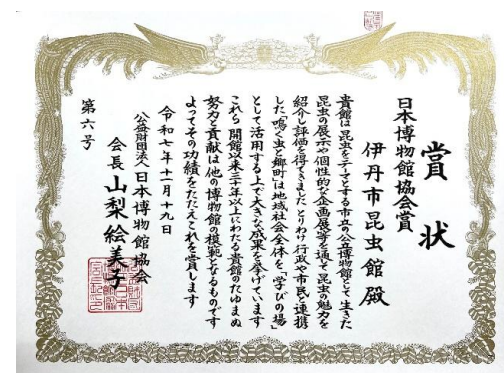 賞状
日本博物館協会賞
伊丹市昆虫館殿
貴館は昆虫をテーマとする市立の公立博物館として生きた
昆虫の展示や個性的な企画展等を通して昆虫の魅力を
紹介し評価を得てきました とりわけ行政や市民と連携
した「鳴く虫と郷町」は地域社会全体を、「学びの場」
として活用する上で大きな成果を挙げています
これら 開館以来三十年以上にわたる貴館のたゆまぬ
努力と貢献は他の博物館の模範となるものです
よってその功績をたたえこれを賞します
令和七年十一月十九日
公益財団法人日本博物館協会
会長 山梨絵美子
第六号